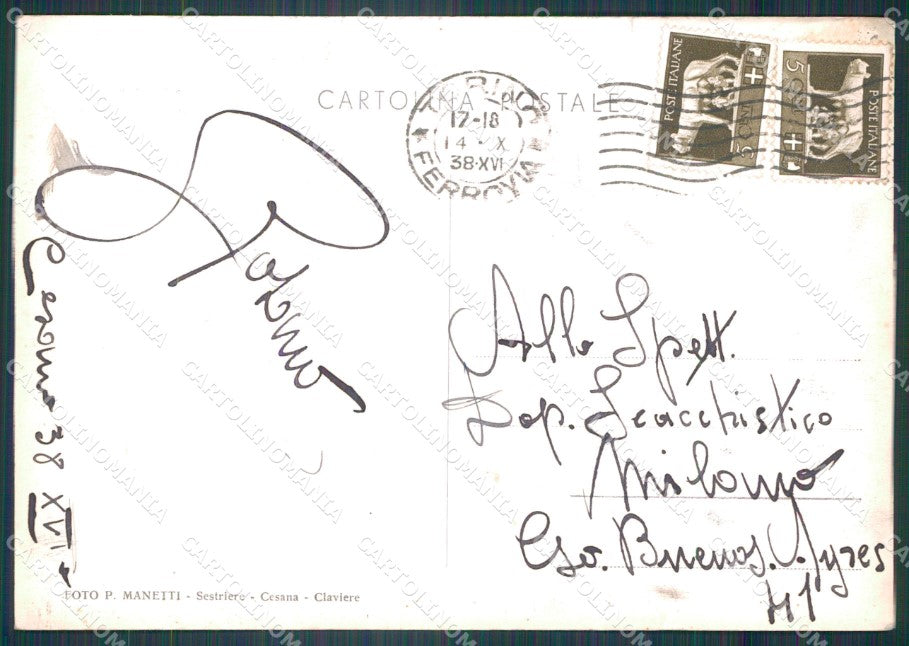 CARTOLINA POSTALE
17-18
14 · X
38·XVI
FERROVIA
POSTE ITALIANE
5 CENT
POSTE ITALIANE
5 CENT
Cesana 38 XVI°
Allo Spett.
Dop. Scacchistico
Milano
Cso. Buenos. Ayres
41
FOTO P. MANETTI - Sestriere - Cesana - Claviere
CARTOLINOMANIA